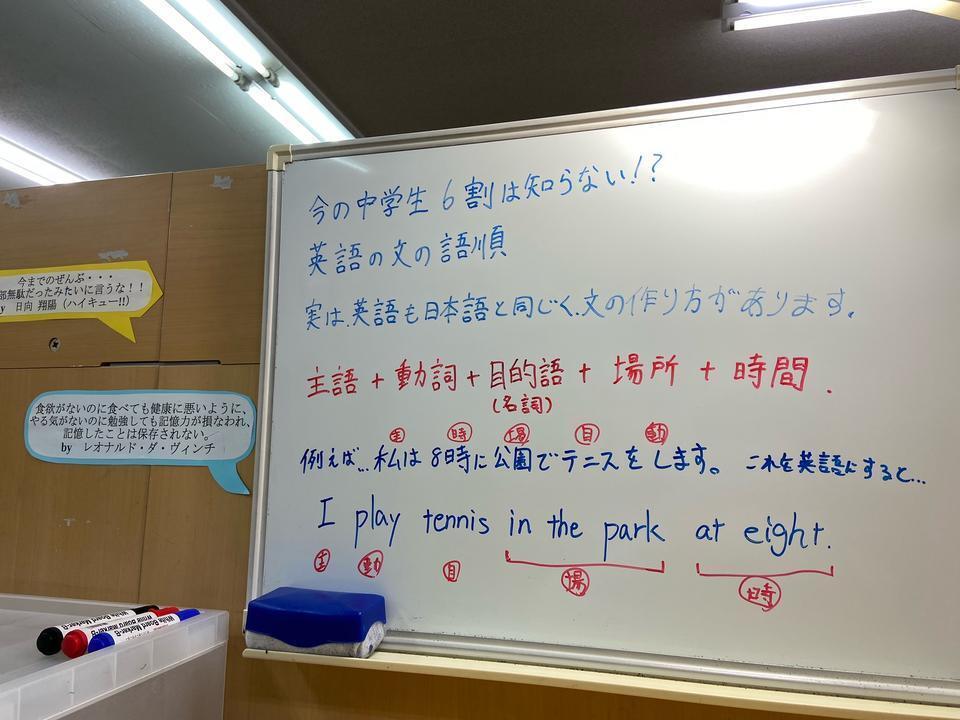 今の中学生6割は知らない!?
英語の文の語順
実は、英語も日本語と同じく、文の作り方があります。
主語 + 動詞 + 目的語 + 場所 + 時間.
(名詞)
主 時 場 目 動
例えば…私は8時に公園でテニスをします。 これを英語にすると…
I play tennis in the park at eight.
主 動 目 場 時
今までのぜんぶ・・・
部無駄だったみたいに言うな!!
by 日向 翔陽(ハイキュー!!)
食欲がないのに食べても健康に悪いように、
やる気がないのに勉強しても記憶力が損なわれ、
記憶したことは保存されない。
by レオナルド・ダ・ヴィンチ
White Board Marker-B
White Board Marker-B